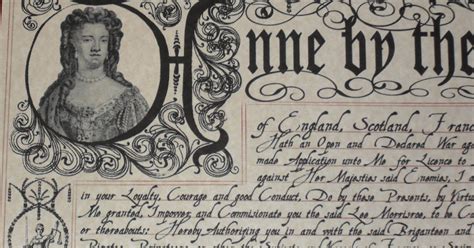 Anne by the
of England, Scotland, Franc
Hath an Open and Declared War aga
made Application unto Me for Licence to
against Her Majesties said Enemies, I
in your Loyalty, Courage and good Conduct, Do by these Presents, by Virtu
Me granted, Impower, and Commissionate you the said Leo Morrisroe, to be C
or thereabouts: Hereby Authorizing you in and with the said Briganteen and